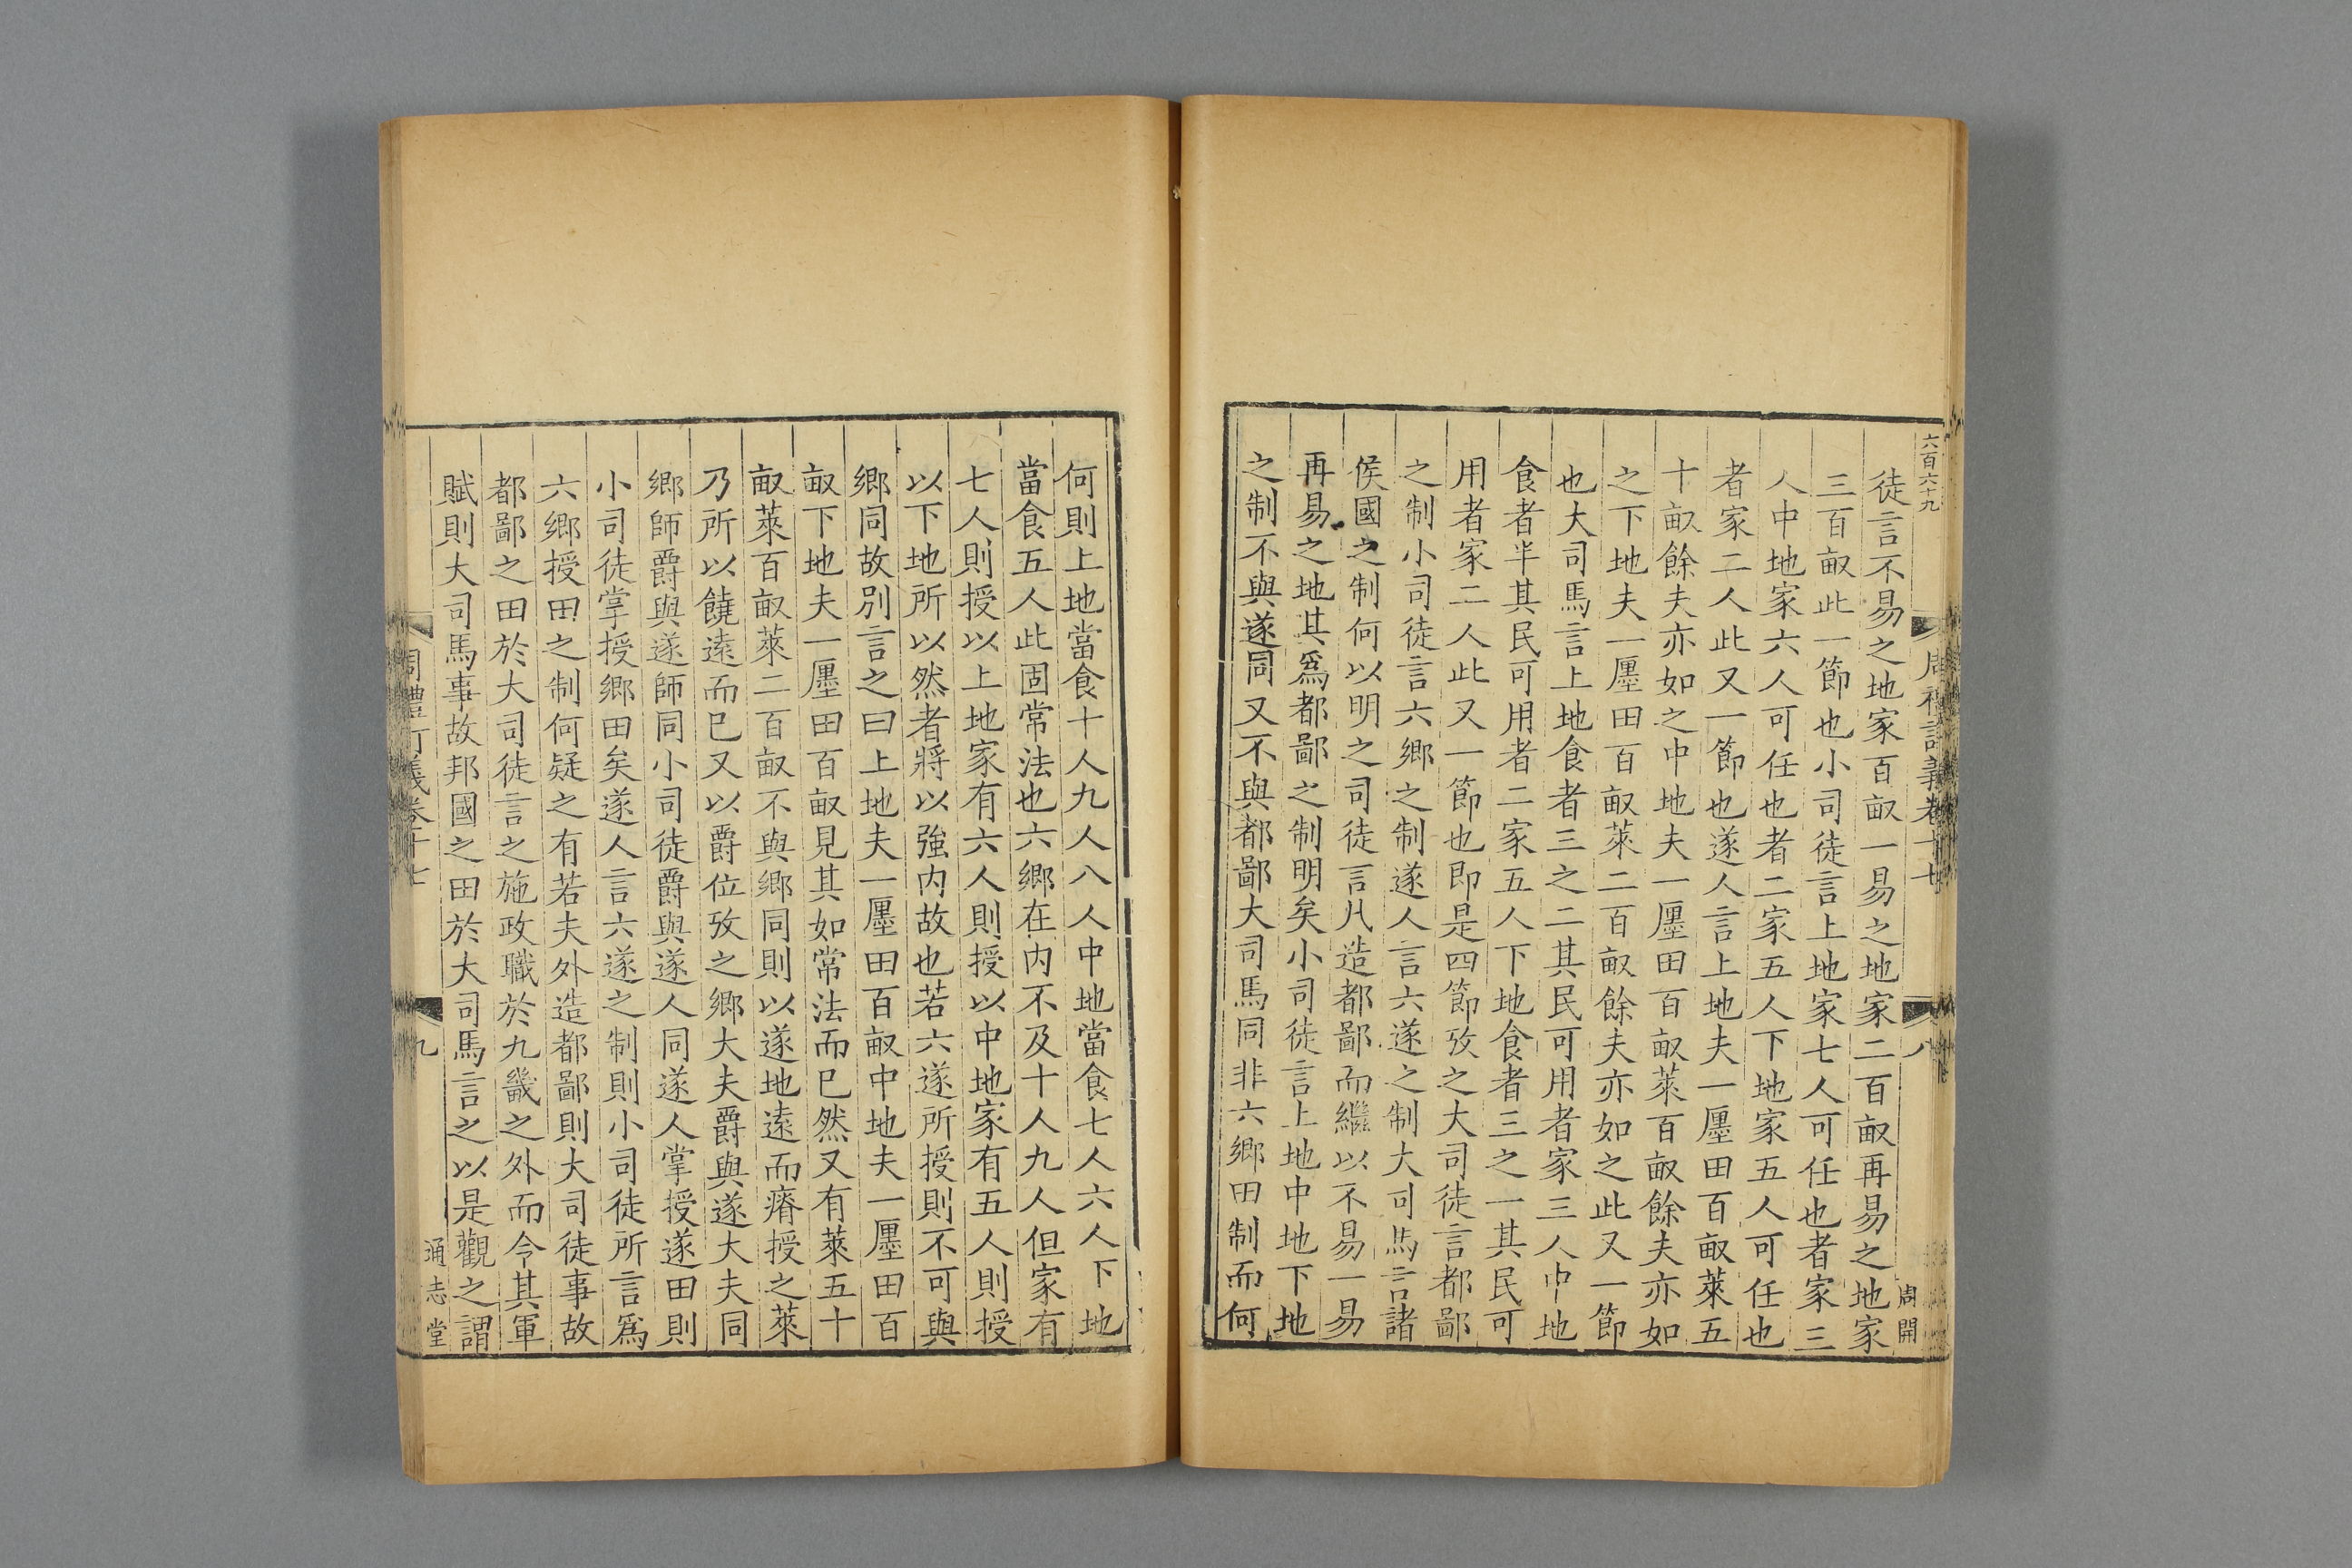 六百六十九
周禮訂義卷十七
八
周開
徒言不易之地家百畝一易之地家二百畝再易之地家
三百畝此一節也小司徒言上地家七人可任也者家三
人中地家六人可任也者二家五人下地家五人可任也
者家二人此又一節也遂人言上地夫一廛田百畝萊五
十畝餘夫亦如之中地夫一廛田百畝萊百畝餘夫亦如
之下地夫一廛田百畝萊二百畝餘夫亦如之此又一節
也大司馬言上地食者三之二其民可用者家三人中地
食者半其民可用者二家五人下地食者三之一其民可
用者家二人此又一節也即是四節攷之大司徒言都鄙
之制小司徒言六鄉之制遂人言六遂之制大司馬言諸
侯國之制何以明之司徒言凡造都鄙而繼以不易一易
再易之地其爲都鄙之制明矣小司徒言上地中地下地
之制不與遂同又不與都鄙大司馬同非六鄉田制而何
何則上地當食十人九人八人中地當食七人六人下地
當食五人此固常法也六鄉在内不及十人九人但家有
七人則授以上地家有六人則授以中地家有五人則授
以下地所以然者將以強内故也若六遂所授則不可與
鄉同故別言之曰上地夫一廛田百畝中地夫一廛田百
畝下地夫一廛田百畝見其如常法而已然又有萊五十
畝萊百畝萊二百畝不與鄉同則以遂地遠而瘠授之萊
乃所以饒遠而已又以爵位攷之鄉大夫爵與遂大夫同
鄉師爵與遂師同小司徒爵與遂人同遂人掌授遂田則
小司徒掌授鄉田矣遂人言六遂之制則小司徒所言爲
六鄉授田之制何疑之有若夫外造都鄙則大司徒事故
都鄙之田於大司徒言之施政職於九畿之外而令其軍
賦則大司馬事故邦國之田於大司馬言之以是觀之謂
周禮訂義卷十七
九
通志堂